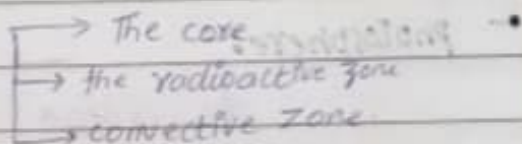 → The core
→ the radioactive zone
→ convective zone